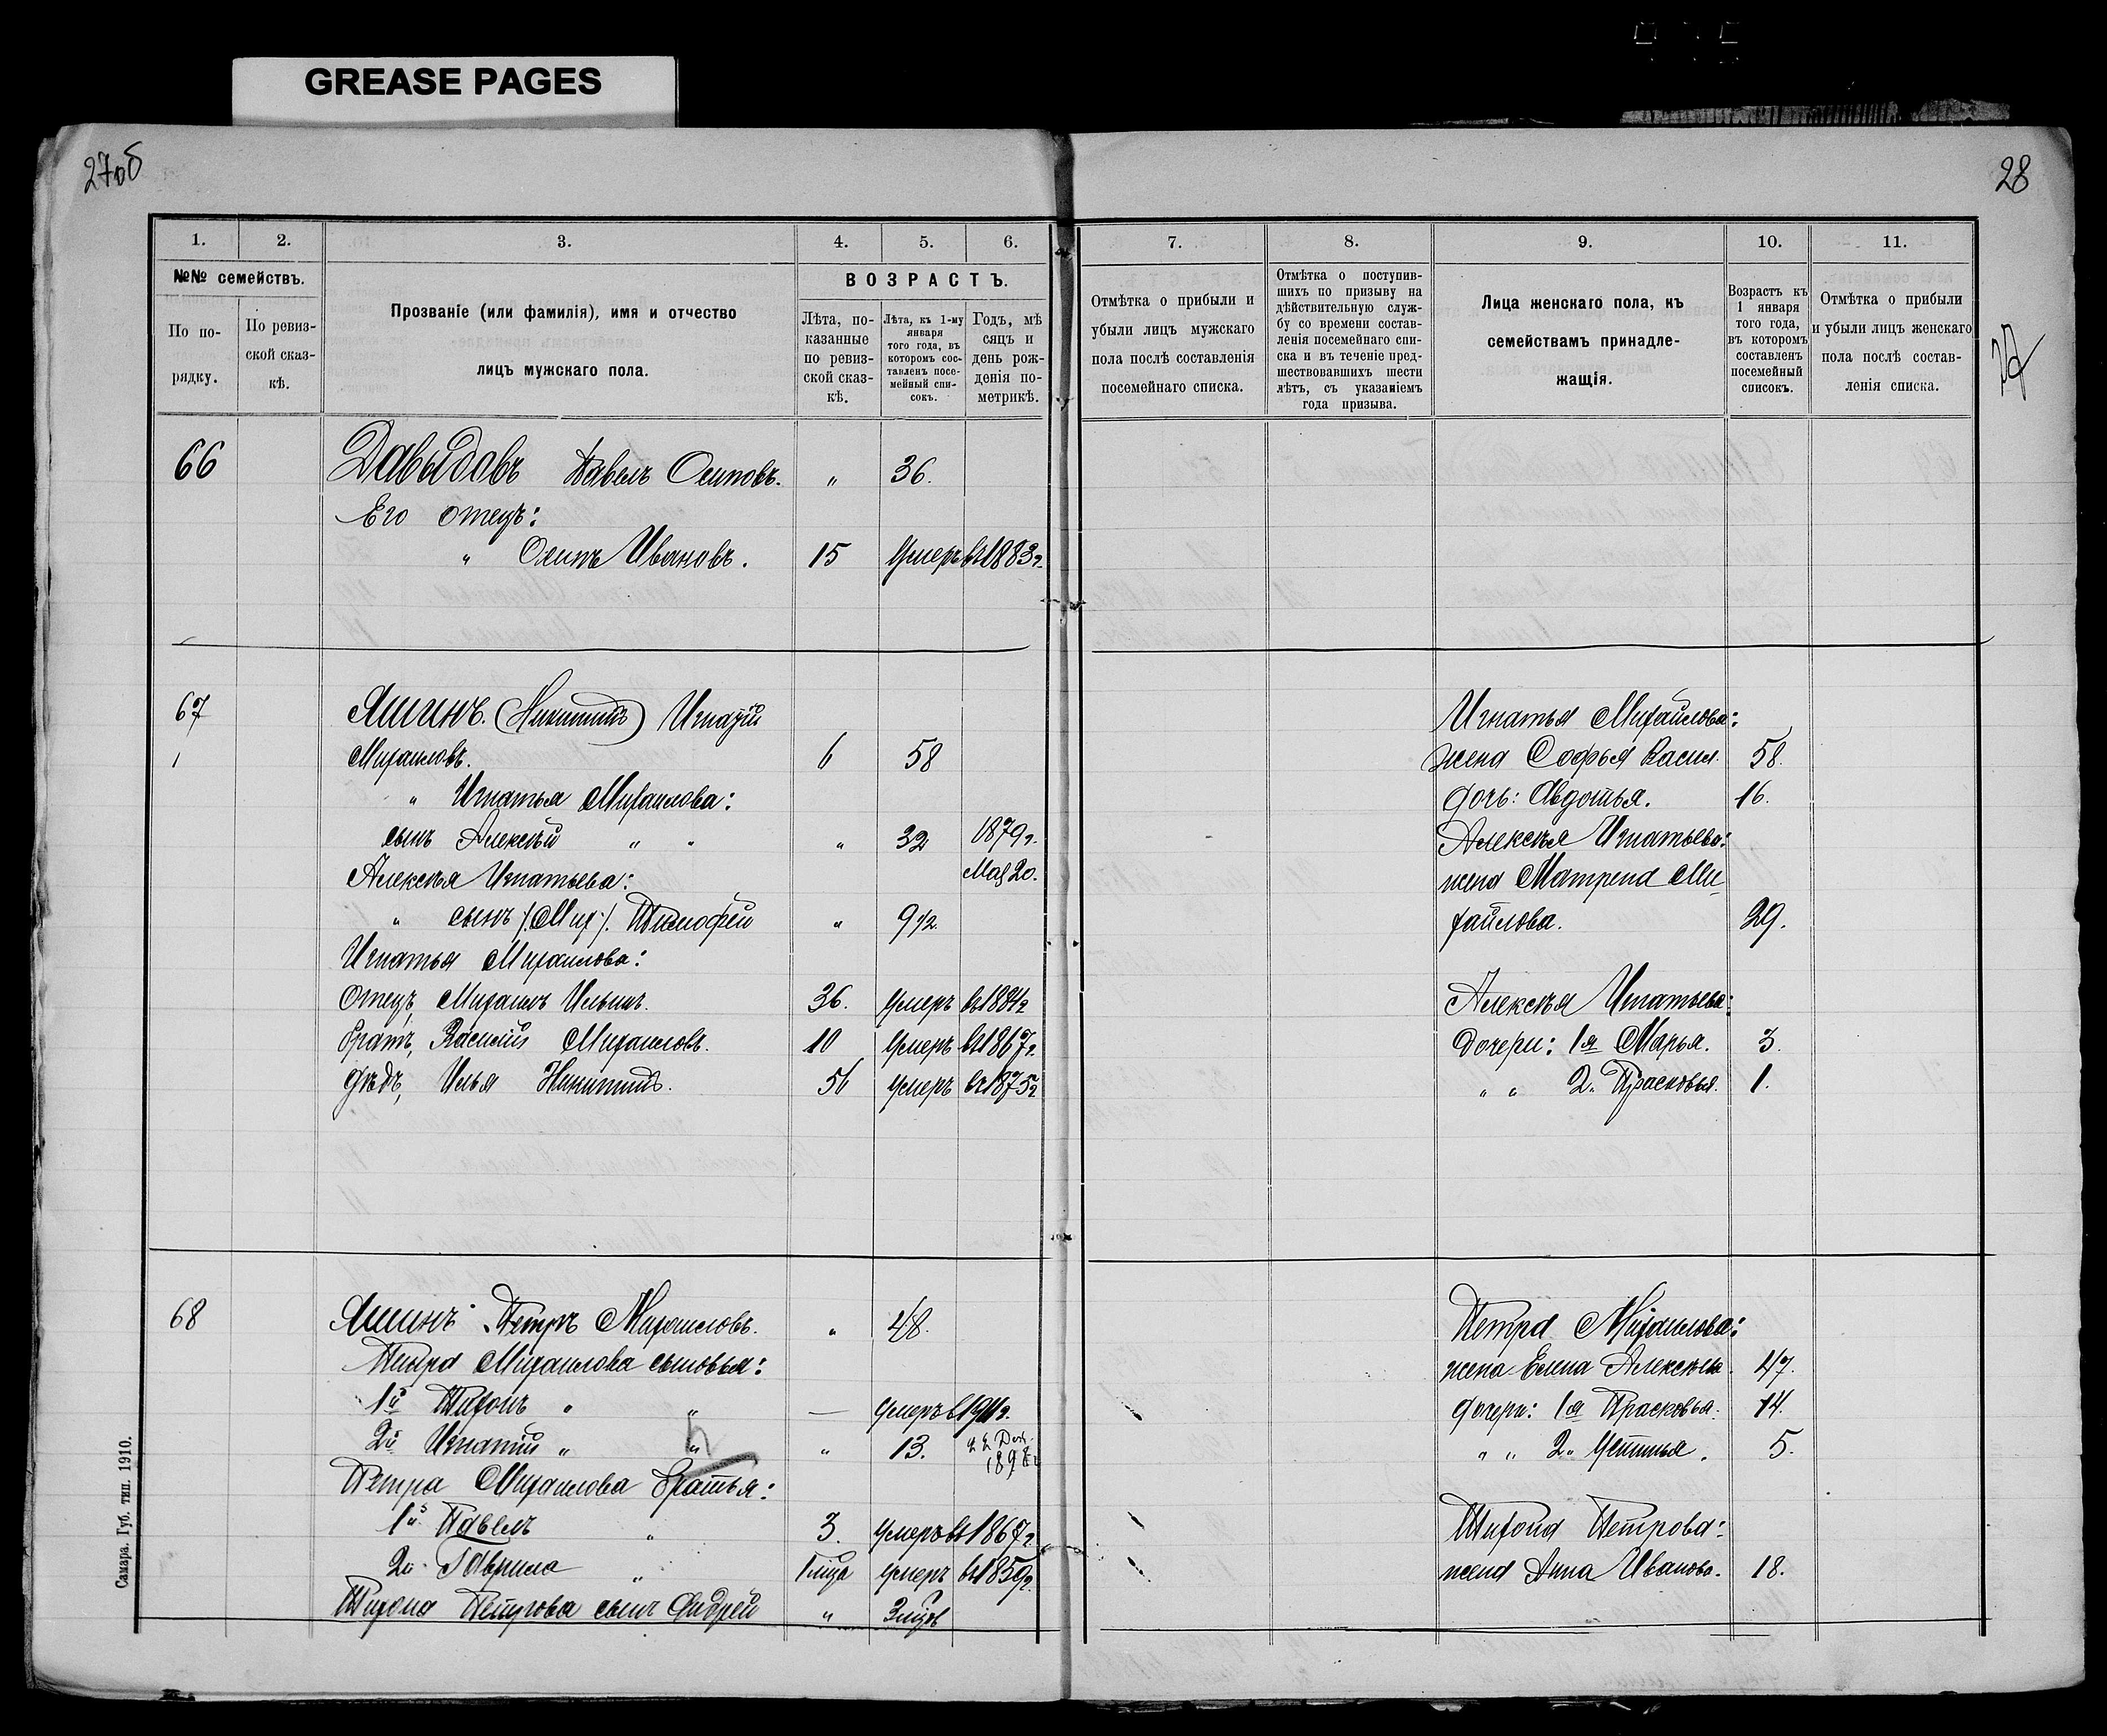 GREASE PAGES
27об
28
1.
2.
3.
4.
5.
6.
№№ семействъ.
По по-
рядку.
По ревиз-
ской сказ-
кѣ.
Прозваніе (или фамилія), имя и отчество
лицъ мужскаго пола.
ВОЗРАСТЪ.
Лѣта, по-
казанные
по ревиз-
ской сказ-
кѣ.
Лѣта, къ 1-му
января
того года, въ
которомъ сос-
тавленъ посе-
мейный спи-
сокъ.
Годъ, мѣ
сяцъ и
день рож-
денія по-
метрикѣ.
7.
8.
9.
10.
11.
Отмѣтка о прибыли и
убыли лицъ мужскаго
пола послѣ составленія
посемейнаго списка.
Отмѣтка о поступив-
шихъ по призыву на
дѣйствительную служ-
бу со времени состав-
ленія посемейнаго спи-
ска и въ теченіе пред-
шествовавшихъ шести
лѣтъ, съ указаніемъ
года призыва.
Лица женскаго пола, къ
семействамъ принадле-
жащія.
Возрастъ къ
1 января
того года,
въ которомъ
составленъ
посемейный
списокъ.
Отмѣтка о прибыли
и убыли лицъ женскаго
пола послѣ состав-
ленія списка.
27
66 Давыдовъ Павелъ Осиповъ. " 36.
Его отецъ:
" Осипъ Ивановъ. 15 Умеръ въ 1883 г.
67 Яшинъ. (Никитинъ) Игнатій
1 Михаиловъ. 6 58
" Игнатья Михаилова:
сынъ Алексѣй " " " 32 1879 г.
Алексѣя Игнатьева: Мая 20.
" сынъ /:Мих:/. Тимофей " 9 1/2
Игнатья Михаилова:
Отецъ, Михаилъ Ильинъ. 36. Умеръ въ 1884 г
братъ, Василій Михаиловъ. 10 Умеръ въ 1867 г.
дѣдъ, Илья Никитинъ. 56 Умеръ въ 1875 г
Игнатья Михайлова:
жена Софья Васил. 58.
дочь: Авдотья. 16.
Алексѣя Игнатьева:
жена Матрена Ми
хайлова. 29.
Алексѣя Игнатьева:
дочери: 1я Марья. 3.
" " 2. Прасковья. 1.
68 Яшинъ Петръ Михаиловъ. " 48.
Петра Михаилова сыновья:
1й Тихонъ " " — Умеръ въ 1911 г.
2й Игнатій " " " 13. 22 Дек. 1898 г
Петра Михаилова братья:
1й Павелъ " 3. Умеръ въ 1867 г
2й Гаврила " 1 мца умеръ въ 1859 г.
Тихона Петрова сынъ Андрей " 3 мцов
Петра Михаилова:
жена Елена Алексѣева. 47.
дочери: 1я Прасковья. 14.
" " 2. Устинья. 5.
Тихона Петрова:
жена Анна Иванова. 18.
Самара. Губ. тип. 1910.